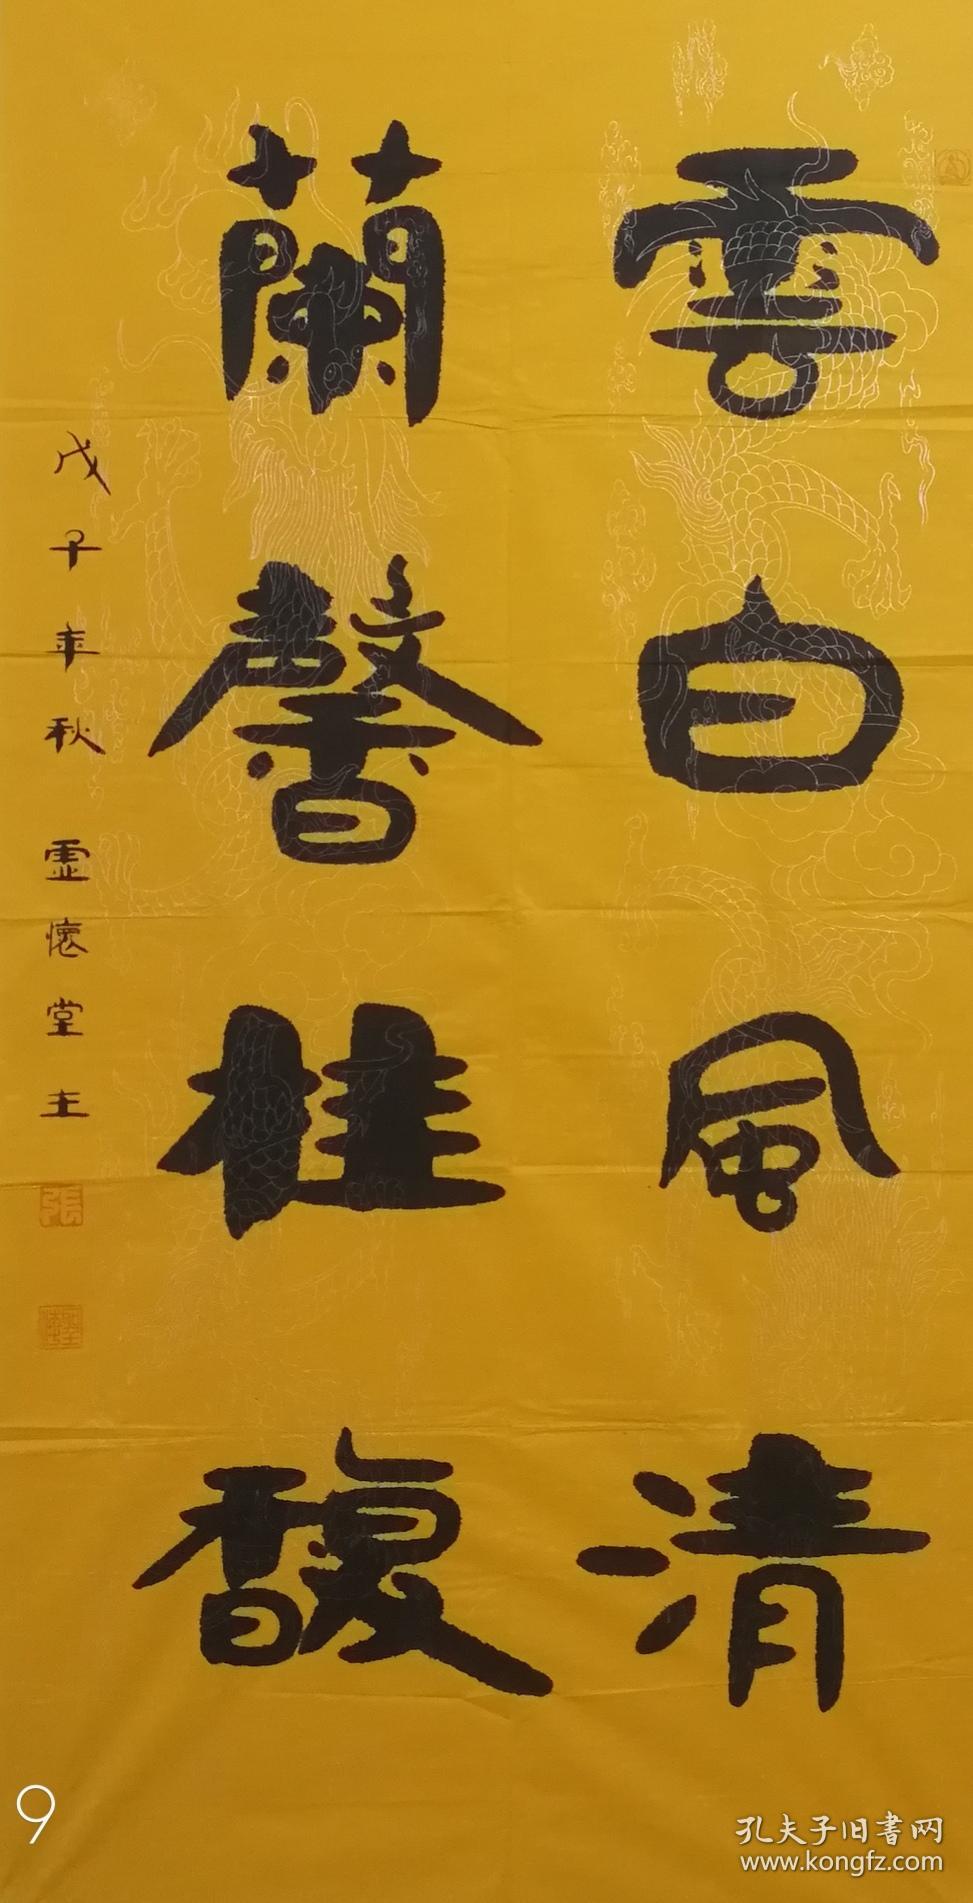 雲白風清
蘭馨桂馥
戊子年秋虛懷堂主
張
9
孔夫子旧書网
www.kongfz.com